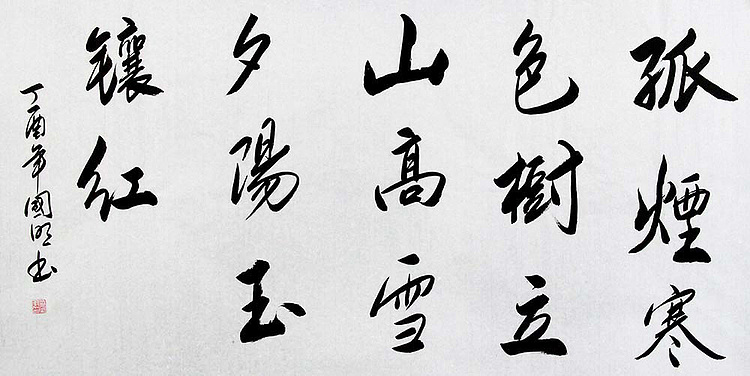 孤煙寒
色樹立
山高雪
夕陽玉
镶红
丁酉年國明书